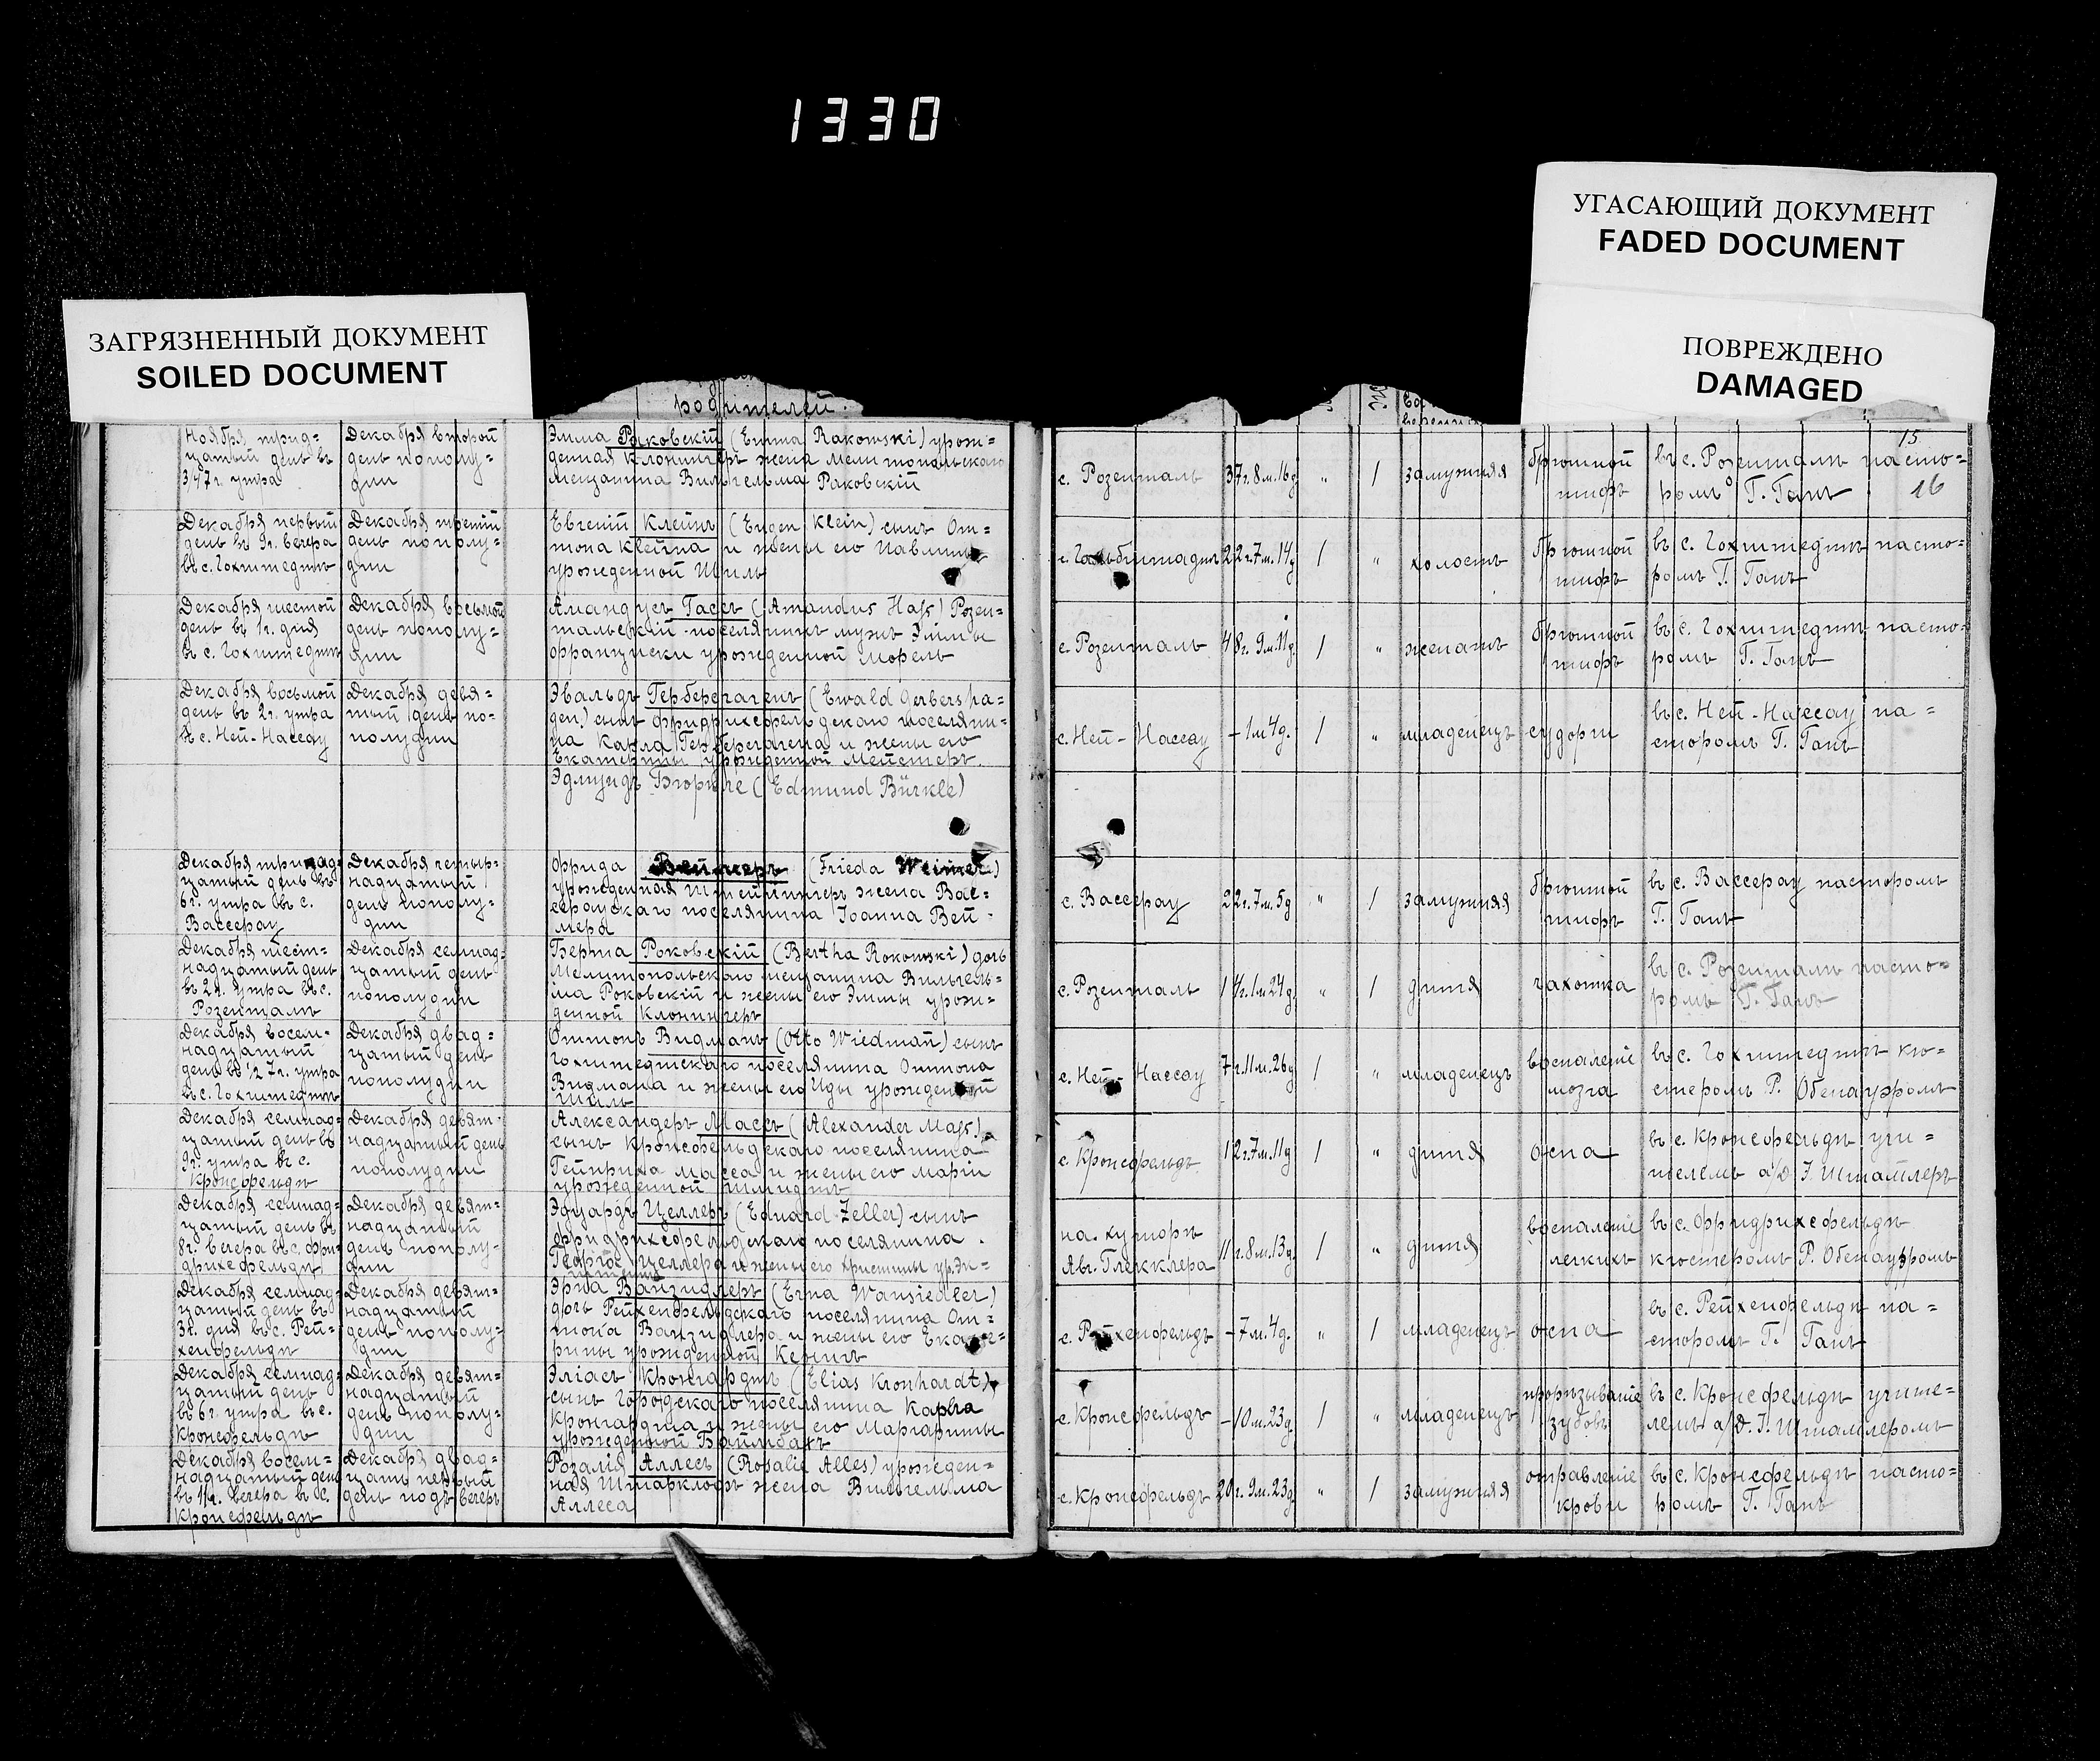 1330
УГАСАЮЩИЙ ДОКУМЕНТ
FADED DOCUMENT
ПОВРЕЖДЕНО
DAMAGED
ЗАГРЯЗНЕННЫЙ ДОКУМЕНТ
SOILED DOCUMENT
родителей.
15
16
Ноября трид=
цатый день въ
3/4 7 г. утра
Декабря второй
день пополу=
дни
Эмма Раковскій (Emma Rakowski) урож=
денная Клонингеръ жена Мелитопольскаго
мещанина Вильгельма Раковскій
с. Розенталь
37г. 8м. 16д.
"
1
замужняя
брюшной
тифъ
въ с. Розенталъ пасто=
ромъ Г. Ганъ
Декабря первый
день въ 9г. вечера
въ с. Гохштедтъ
Декабря третій
день пополу=
дни
Евгеній Клейнъ (Eugen Klein) сынъ От=
тона Клейна и жены его Павлины
урожденной Шиль
22г. 7м. 14д
1
"
холостъ
брюшной
тифъ
въ с. Гохштедтъ пасто=
ромъ Г. Ганъ
Декабря шестой
день въ 1г. дня
въ с. Гохштедтъ
Декабря восьмой
день пополу=
дни
Амандусъ Гассъ (Amandus Haß) Розен=
тальскій поселянинъ мужъ Эммы
Франциски урожденной Морель
с. Розенталь
48г. 9м. 11д.
1
"
женатъ
брюшной
тифъ
въ с. Гохштедтъ пасто=
ромъ Г. Ганъ
Декабря восьмой
день въ 2г. утра
въ с. Ней-Нассау
Декабря девя=
тый день по=
полудни
Эвальдъ Гербергагенъ (Ewald Gerbersha=
gen) сынъ Фридрихсфельдскаго поселяни=
на Карла Гербергагена и жены его
Екатерины урожденной Мейстеръ.
с. Ней-Нассау
- 1м 4д.
1
"
младенецъ
судорги
въ с. Ней-Нассау па=
сторомъ Г. Ганъ
Эдмундъ Бюркле (Edmund Bürkle)
Декабря тринад=
цатый день въ
6г. утра въ с.
Вассерау
Декабря четыр=
надцатый
день пополу=
дни
Фрида Веймеръ (Frieda Weimer)
урожденная Штейнингеръ жена Вас=
сераускаго поселянина Іоанна Вей-
мера
с. Вассерау
22г. 7м. 5д
"
1
замужняя
брюшной
тифъ
въ с. Вассерау пасторомъ
Г. Ганъ
Декабря шест=
надцатый день
въ 2г. утра въ с.
Розенталъ
Декабря семнад=
цатый день
пополудни
Берта Роковскій (Bertha Rokowski) дочь
Мелитопольскаго мещанина Вильгель=
ма Роковскій и жены его Эммы урож=
денной Клонингеръ
с. Розенталь
14г. 1м 24д.
"
1
дитя
чахотка
въ с. Розенталъ пасто=
ромъ Г. Ганъ
Декабря восем=
надцатый
день въ 1/2 7г. утра
въ с. Гохштедтъ
Декабря двад=
цатый день
пополудни
Оттонъ Видманъ (Otto Wiedman̅) сынъ
Гохштедтскаго поселянина Оттона
Видмана и жены его Иды урожденной
Шиль
с. Ней-Нассау
7г. 11м. 26д
1
"
младенецъ
воспаленіе
мозга
въ с. Гохштедтъ кю=
стеромъ Р. Обенауэромъ
Декабря семнад=
цатый день въ
9г. утра въ с.
Кронсфельдъ
Декабря девят=
надцатый день
пополудни
Александеръ Массъ (Alexander Maß)
сынъ Кронсфельдскаго поселянина
Гейнриха Масса и жены его Маріи
урожденной Шмидтъ
с. Кронсфельдъ
12г. 7м. 11д
1
"
дитя
оспа
въ с. Кронсфельдъ учи=
телемъ а/д I. Штамлеръ
Декабря семнад=
цатый день въ
8г. вечера въ с. Фри=
дрихсфельдъ
Декабря девят=
надцатый
день пополу=
дни
Эдуардъ Целлеръ (Eduard Zeller) сынъ
Фридрихсфельдскаго поселянина
Георгія Целлера и жены его Христины
на хуторъ
Авг. Глекклера
11г. 8м. 13д
1
"
дитя
воспаленіе
легкихъ
въ с. Фридрихсфельдъ
кюстеромъ Р. Обенауэромъ
Декабря семнад=
цатый день въ
3г. дня въ с. Рей=
хенфельдъ
Декабря девят=
надцатый
день пополу=
дни
Эрна Ванзидлеръ (Erna Wansiedler)
дочь Рейхенфельдскаго поселянина От=
тона Ванзидлера и жены его Екате=
рины урожденной Кенигъ
с. Рейхенфельдъ
- 7м. 4д.
"
1
младенецъ
оспа
въ с. Рейхенфельдъ па=
сторомъ Г. Ганъ
Декабря семнад=
цатый день
въ 6г. утра въ с.
Кронсфельдъ
Декабря девят=
надцатый
день пополу=
дни
Эліасъ Кронгардтъ (Elias Kronhardt),
сынъ Городскаго поселянина Карла
Кронгардта и жены его Маргариты
урожденной Баумбахъ
с. Кронсфельдъ
- 10м. 23д.
1
"
младенецъ
прорѣзываніе
зубовъ
въ с. Кронсфельдъ учите=
лемъ а/д. I. Штамлеромъ
Декабря восем=
надцатый день
въ 11г. вечера въ с.
Кронсфельдъ
Декабря двад=
цать первый
день подъ вечеръ
Розалія Аллесъ (Rosalie Alles) урожден=
ная Штарклофъ жена Вильгельма
Аллеса
с. Кронсфельдъ
20г. 9м. 23д.
"
1
замужняя
отравленіе
крови
въ с. Кронсфельдъ пасто=
ромъ Г. Ганъ